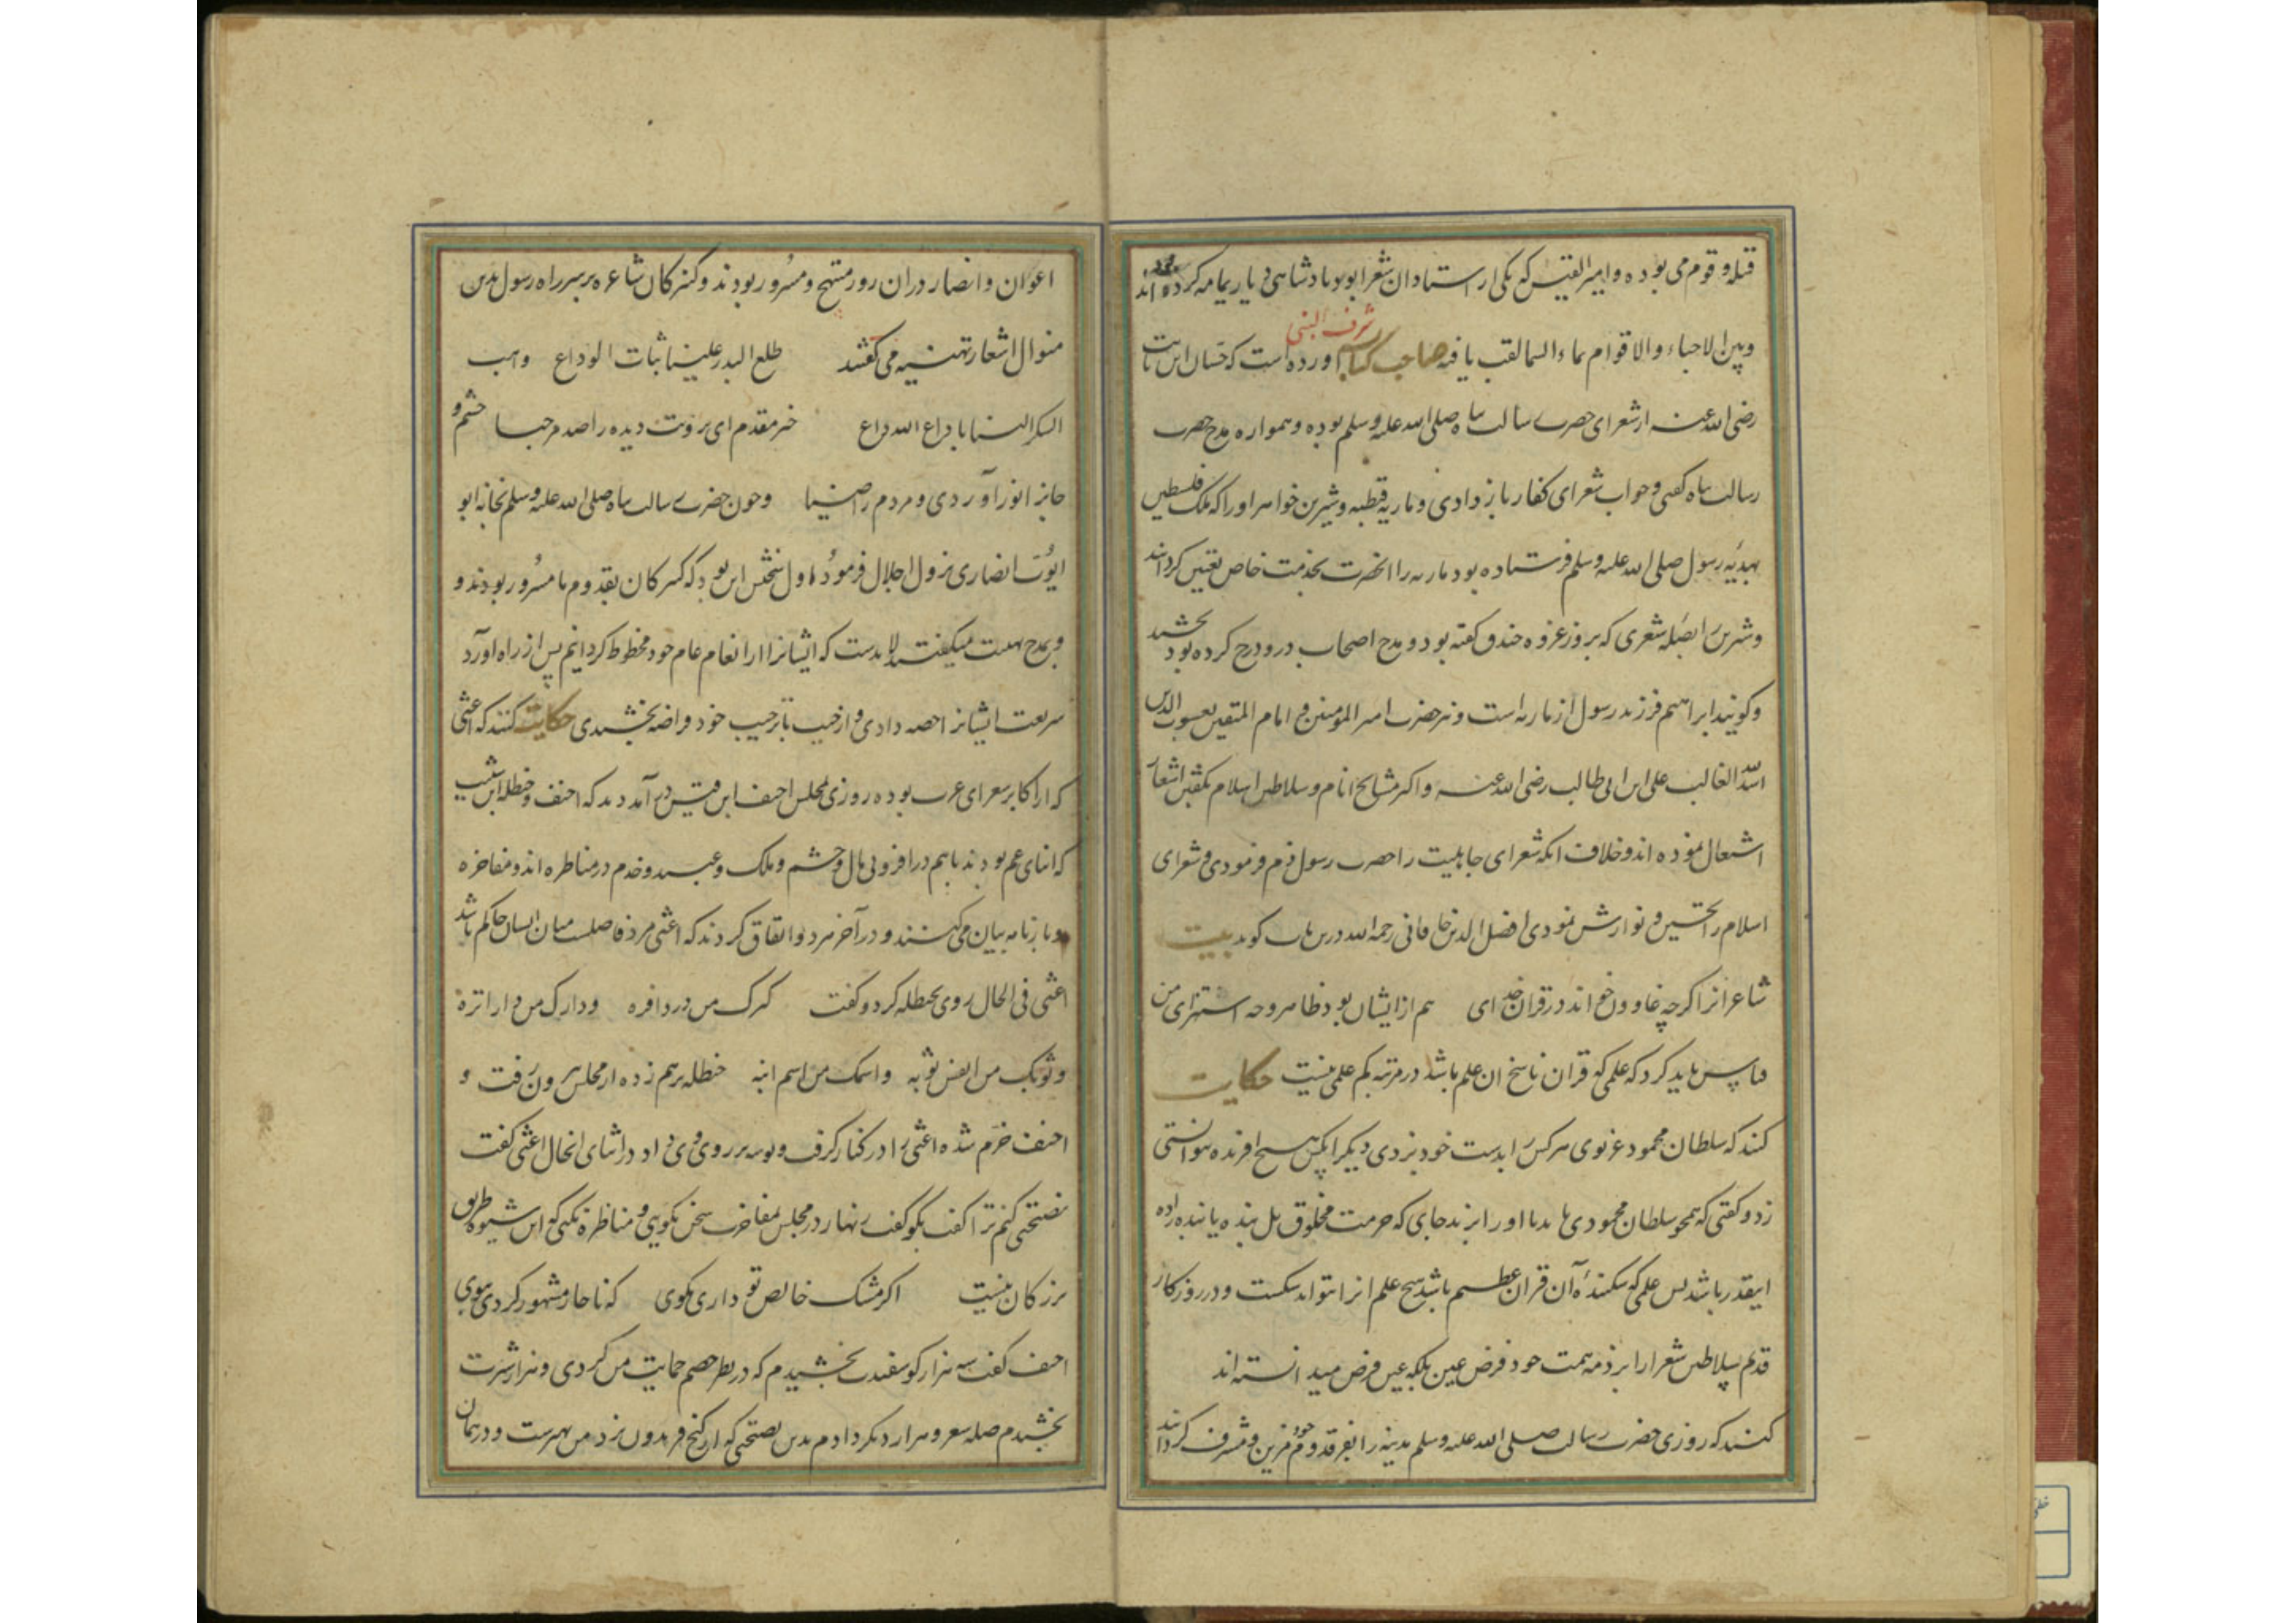 قبله و قوم می بوده و امیرالقیس که یکی از استادان شعرا بوده پادشاهی دیار یمامه کرده اند
و بین الاحباء والاقوام بماء السما لقب یافته صاحب کتاب شرف النبی آورده است که حسان ابن ثابت
رضی الله عنه از شعرای حضرت رسالت پناه صلی الله علیه وسلم بوده و همواره مدح حضرت
رسالت پناه گفتی و جواب شعرای کفار باز دادی و ماریه قبطیه و شیرین خواهر او را که ملک فلسطین
بهدیه رسول صلی الله علیه وسلم فرستاده بود ماریه را آنحضرت بخدمت خاص تعیین کردانید
و شیرین را بصله شعری که بروز غزوه خندق گفته بود و مدح اصحاب درو درج کرده بود بخشید
و گویند ابراهیم فرزند رسول از ماریه است و نیز حضرت امیر المومنین و امام المتقین یعسوب الدین
اسد الله الغالب علی ابن ابی طالب رضی الله عنه و اکثر مشایخ انام و سلاطین اسلام بگفتن اشعار
اشتغال نموده اند و خلاف آنکه شعرای جاهلیت را حضرت رسول ذم فرمودی و شعرای
اسلام را تحسین و نوازش نمودی افضل الدین خاقانی رحمه الله درین باب گوید بیت
شاعرانرا اگرچه غاوون خواند در قرآن خدای هم از ایشان بود ظاهر وجه استثنای من
قیاس باید کرد که علمی که قرآن ناسخ آن علم باشد در مرتبه کم علمی نیست حکایت
کنند که سلطان محمود غزنوی هر کس را بدست خود بزدی دیگر آنکس را هیچ آفریده نتوانستی
زد و گفتی که همچو سلطان محمودی باید تا او را بزند جای که حرمت مخلوق بل بنده یا بنده زاده
اینقدر باشد پس علمی که شکننده آن قرآن عظیم باشد هیچ علم آنرا نتواند شکست و در روزگار
قدیم سلاطین شعرا را بر ذمه همت خود فرض عین بلکه عین فرض میدانسته اند
کنند که روزی حضرت رسالت صلی الله علیه وسلم مدینه را بفر قدوم خود مزین و مشرف گردانید
اعوان و انصار در آن روز مبتهج و مسرور بودند و کنیزکان شاعره بر سر راه رسول بدین
منوال اشعار تهنیه می گفتند طلع البدر علینا ثنیات الوداع وجب
الشکر علینا ما دعا لله داع خیر مقدم ای برویت دیده را صد مرحبا چشم و
خانه را نور آوردی و مردم را ضیا و چون حضرت رسالت پناه صلی الله علیه وسلم بخانه ابو
ایوب انصاری نزول اجلال فرمود اول سخنش این بود که کنیزکان بقدوم ما مسرور بودند و
و بمدح تهنیت میگفتند لابد است که ایشانرا از انعام عام خود محظوظ گردانیم پس از راه آورد
سریعت ایشانرا حصه دادی و از خیب تا ترحیب خود و راضه بخشیدی حکایت کنند که اعشی
که از اکابر شعرای عرب بوده روزی بمجلس احنف ابن قیس در آمد دید که احنف و حنظله ابن شیب
که ابنای عم بودند با هم در افزونی مال و حشم و ملک و عبید و خدم در مناظره اند و مفاخره
و ما زنامه بیان می کنند و در آخر هر دو اتفاق کردند که اعشی مرد فاصلست میان ایشان حاکم باشد
اعشی فی الحال روی بحنظله کرد و گفت
و ثوبک من ثوبه و اسمک من اسم ابنه حنظله برهم زده از مجلس بیرون رفت و
احنف خرم شده اعشی را در کنار گرفت و بوسه بر روی وی داد در اثنای آنحال اعشی گفت
نصیحتی کنم ترا گفت بگو گفت زنهار در مجلس مفاخرت سخن نگویی و مناظره نکنی که این شیوه طریق
بزرگان نیست اگر مشک خالص تو داری مگوی که ناچار مشهور گردد ببوی
احنف گفت سه هزار گوسفندت بخشیدم که در نظر خصم حمایت من کردی و هزار شترت
بخشیدم صله شعر و هزار دیگر دادم بدین نصیحتی که از گنج فریدون نزد من بهترست و در همان